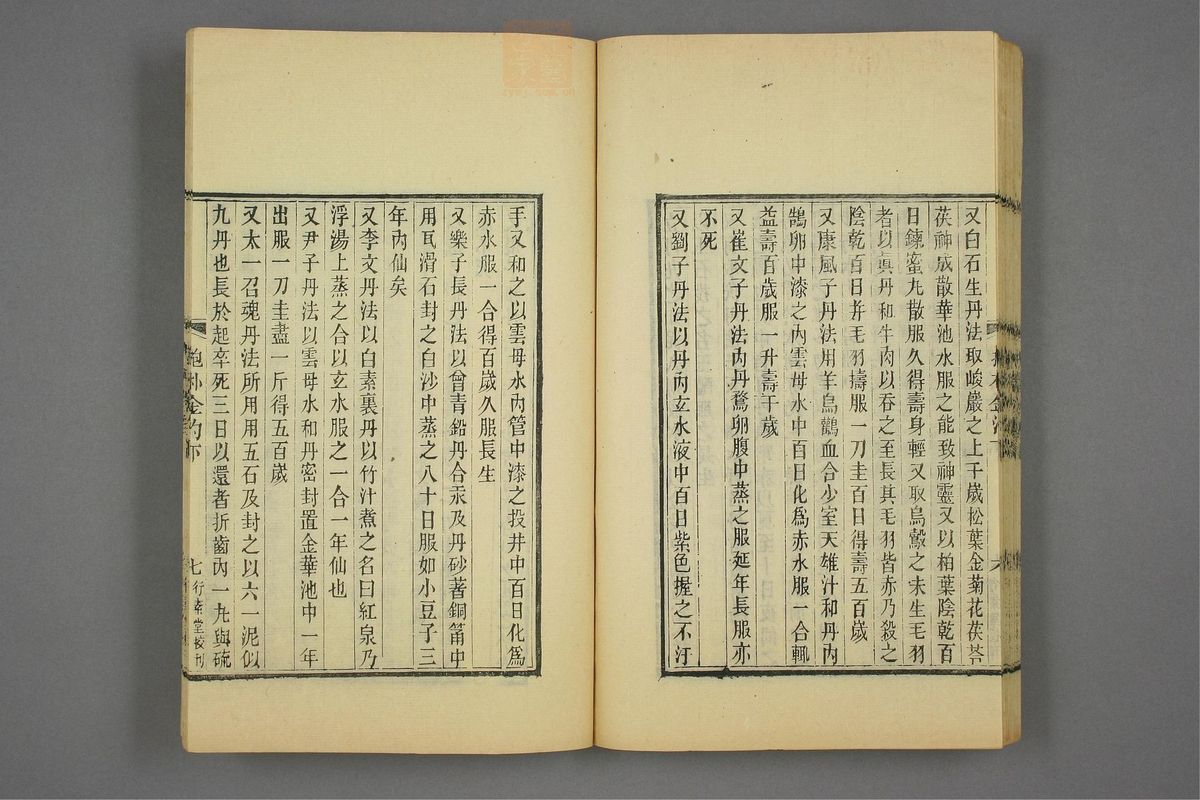 又白石生丹法取峻巖之上千歲松葉金菊花茯苓
茯神成散華池水服之能致神靈又以柏葉陰乾百
日鍊蜜丸散服久得壽身輕又取烏鷇之未生毛羽
者以眞丹和牛肉以吞之至長其毛羽皆赤乃殺之
陰乾百日并毛羽擣服一刀圭百日得壽五百歲
又康風子丹法用羊烏鶴血合少室天雄汁和丹內
鵠卵中漆之內雲母水中百日化爲赤水服一合輒
益壽百歲服一升壽千歲
又崔文子丹法內丹鶩卵腹中蒸之服延年長服亦
不死
又劉子丹法以丹內玄水液中百日紫色握之不汙
手又和之以雲母水內管中漆之投井中百日化爲
赤水服一合得百歲久服長生
又樂子長丹法以曾青鉛丹合汞及丹砂著銅筩中
用瓦滑石封之白沙中蒸之八十日服如小豆子三
年內仙矣
又李文丹法以白素裹丹以竹汁煮之名曰紅泉乃
浮湯上蒸之合以玄水服之一合一年仙也
又尹子丹法以雲母水和丹密封置金華池中一年
出服一刀圭盡一斤得五百歲
又太一召魂丹法所用用五石及封之以六一泥似
九丹也長於起卒死三日以還者折齒內一丸與硫
抱朴金汋下
七
行素堂校刊